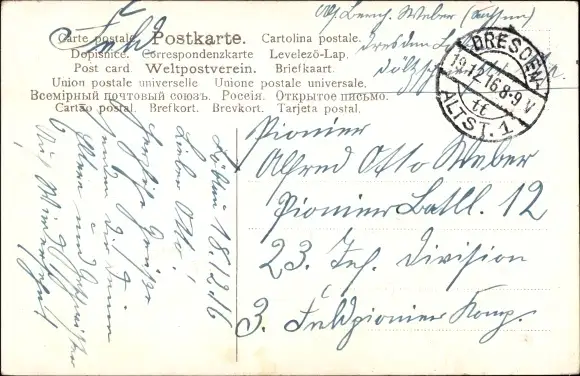 Feld
Postkarte.
Carte postale. Cartolina postale.
Dopisnice. Correspondenzkarte Levelező-Lap.
Post card. Weltpostverein. Briefkaart.
Union postale universelle Unione postale universale.
Всемірный почтовый союзъ. Россія. Открытое письмо.
Cartão postal. Brefkort. Brevkort. Tarjeta postal.
Weber (Sachsen)
Dresden
DRESDEN
19.12.16.8-9 V
ALTST. 1
tt
Pionier
Alfred Otto Weber
Pionier Batll. 12
23. Inf. Division
3. Feldpionier Komp.
18.12.16
Lieber Otto!
Herzliche Grüße
senden dir deine
und Geschwister
Auf Wiedersehn!